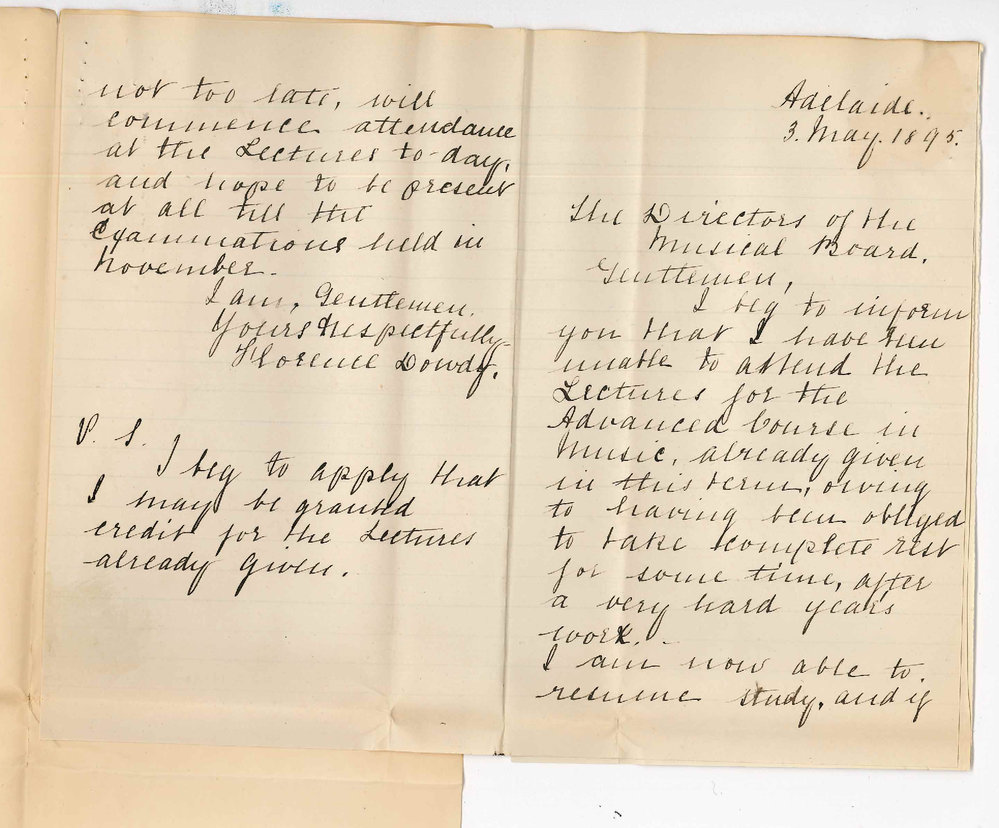 Adelaide.
3. May. 1895.
The Directors of the
Musical Board.
Gentlemen,
I beg to inform
you that I have been
unable to attend the
Lectures for the
Advanced Course in
Music, already given
in this term, owing
to having been obliged
to take complete rest
for some time, after
a very hard years
work. -
I am now able to
resume study, and if
not too late, will
commence attendance
at the Lectures to-day,
and hope to be present
at all till the
Examinations held in
November.
I am, Gentlemen.
Yours Respectfully-
Florence Dowdy.
P. S.
I beg to apply that
I may be granted
credit for the Lectures
already given.